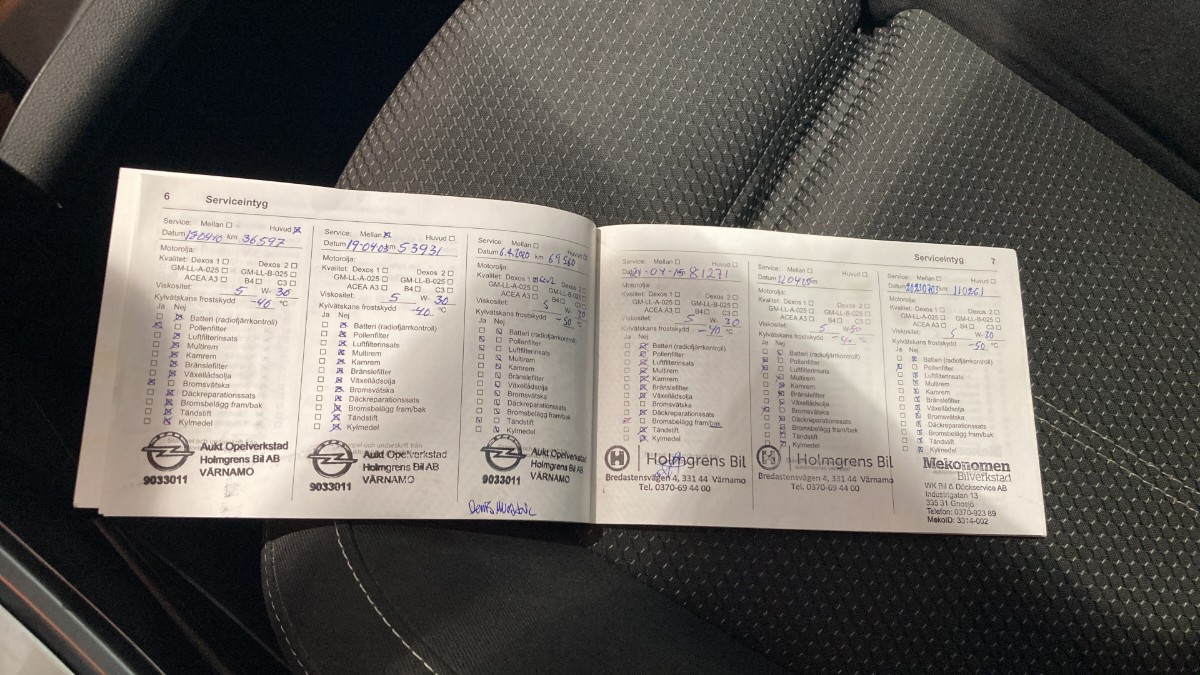 6 Serviceintyg
Service: Mellan Huvud
Datum km 36597
Motorolja:
Kvalitet: Dexos 1 Dexos 2
GM-LL-A-025 GM-LL-B-025
ACEA A3 B4 C3
Viskositet: 5 W- 30
Kylvätskans frostskydd -40 °C
Ja Nej
Batteri (radiofjärrkontroll)
Pollenfilter
Luftfilterinsats
Multirem
Kamrem
Bränslefilter
Växellådsolja
Bromsvätska
Däckreparationssats
Bromsbelägg fram/bak
Tändstift
Kylmedel
Aukt Opelverkstad
Holmgrens Bil AB
VÄRNAMO
9033011
Service: Mellan Huvud
Datum 19-0403 km 53931
Motorolja:
Kvalitet: Dexos 1 Dexos 2
GM-LL-A-025 GM-LL-B-025
ACEA A3 B4 C3
Viskositet: 5 W- 30
Kylvätskans frostskydd -40 °C
Ja Nej
Batteri (radiofjärrkontroll)
Pollenfilter
Luftfilterinsats
Multirem
Kamrem
Bränslefilter
Växellådsolja
Bromsvätska
Däckreparationssats
Bromsbelägg fram/bak
Tändstift
Kylmedel
Aukt Opelverkstad
Holmgrens Bil AB
VÄRNAMO
9033011
Service: Mellan Huvud
Datum km 69560
Motorolja:
Kvalitet: Dexos 1 Dexos 2
GM-LL-A-025 GM-LL-B-025
ACEA A3 B4 C3
Viskositet: 5 W- 30
Kylvätskans frostskydd -50 °C
Ja Nej
Batteri (radiofjärrkontroll)
Pollenfilter
Luftfilterinsats
Multirem
Kamrem
Bränslefilter
Växellådsolja
Bromsvätska
Däckreparationssats
Bromsbelägg fram/bak
Tändstift
Kylmedel
Aukt Opelverkstad
Holmgrens Bil AB
VÄRNAMO
9033011
Serviceintyg 7
Service: Mellan Huvud
81271
Motorolja:
Kvalitet: Dexos 1 Dexos 2
GM-LL-A-025 GM-LL-B-025
ACEA A3 B4 C3
Viskositet: 5 W- 30
Kylvätskans frostskydd -40 °C
Ja Nej
Batteri (radiofjärrkontroll)
Pollenfilter
Luftfilterinsats
Multirem
Kamrem
Bränslefilter
Växellådsolja
Bromsvätska
Däckreparationssats
Bromsbelägg fram/bak
Tändstift
Kylmedel
H Holmgrens Bil
Bredastensvägen 4, 331 44 Värnamo
Tel. 0370-69 44 00
Service: Mellan Huvud
Datum
Motorolja:
Kvalitet: Dexos 1 Dexos 2
GM-LL-A-025 GM-LL-B-025
ACEA A3 B4 C3
Viskositet: 5
Kylvätskans frostskydd °C
Ja Nej
Batteri (radiofjärrkontroll)
Pollenfilter
Luftfilterinsats
Multirem
Kamrem
Bränslefilter
Växellådsolja
Bromsvätska
Däckreparationssats
Bromsbelägg fram/bak
Tändstift
Kylmedel
H Holmgrens Bil
Bredastensvägen 4, 331 44 Värnamo
Tel. 0370-69 44 00
Service: Mellan Huvud
Datum km 110261
Motorolja:
Kvalitet: Dexos 1 Dexos 2
GM-LL-A-025 GM-LL-B-025
ACEA A3 B4 C3
Viskositet: 5 W- 30
Kylvätskans frostskydd -50 °C
Ja Nej
Batteri (radiofjärrkontroll)
Pollenfilter
Luftfilterinsats
Multirem
Kamrem
Bränslefilter
Växellådsolja
Bromsvätska
Däckreparationssats
Bromsbelägg fram/bak
Tändstift
Kylmedel
Mekonomen
Bilverkstad
WK Bil & Däckservice AB
Industrigatan 13
335 31 Gnosjö
Telefon: 0370-923 89
MekoID: 3314-002